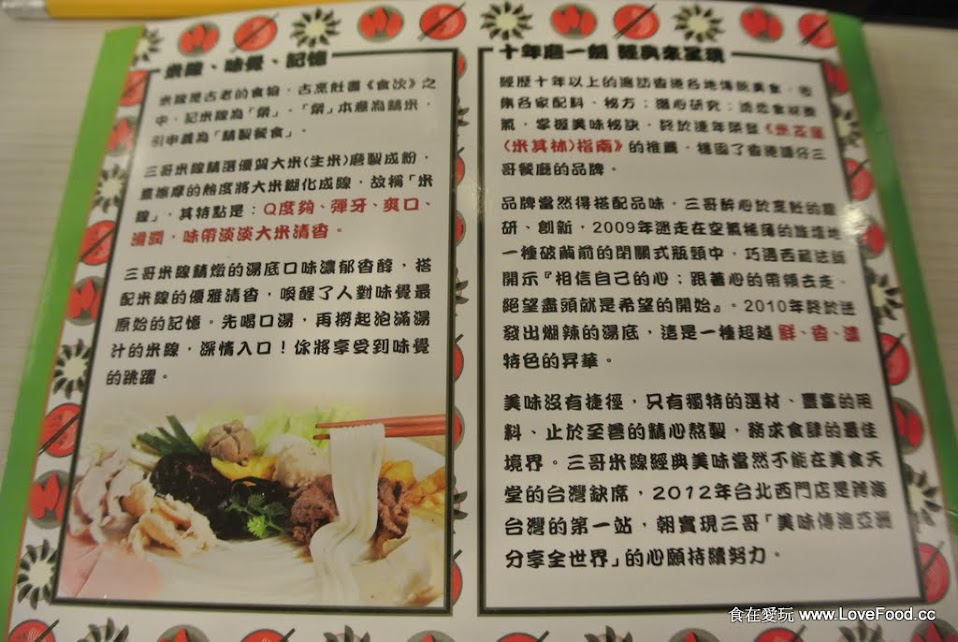 米線、味覺、記憶
米線是古老的食物，古烹飪書《食次》之
中，記米線為「粲」。「粲」本意為精米，
引申義為「精製餐食」。
三哥米線精選優質大米(生米)磨製成粉，
靠擦摩的熱度將大米糊化成線，故稱「米
線」，其特點是：Q度夠、彈牙、爽口、
滑潤，味帶淡淡大米清香。
三哥米線精燉的湯底口味濃郁香醇，搭
配米線的優雅清香，喚醒了人對味覺最
原始的記憶。先喝口湯，再撈起泡滿湯
汁的米線，深情入口！你將享受到味覺
的跳躍。
十年磨一劍 經典來呈現
經歷十年以上的遍訪香港各地傳統美食，
集各家配料、秘方；潛心研究；
氣，掌握美味秘訣，終於連年榮登《米芝蓮
(米其林)指南》的推薦，穩固了香港譚仔三
哥餐廳的品牌。
品牌當然得搭配品味，三哥醉心於烹飪的鑽
研、創新，2009年迷走在空氣稀薄的
一種破繭前的閉關式瓶頸中，巧遇西藏法師
開示『相信自己的心；跟著心的帶領去走，
絕望盡頭就是希望的開始』。2010年終於迸
發出煳辣的湯底，這是一種超越鮮、香、濃
特色的昇華。
美味沒有捷徑，只有獨特的選材、豐富的用
料、止於至善的精心熬製，務求食肆的最佳
境界。三哥米線經典美味當然不能在美食天
堂的台灣缺席，2012年台北西門店是跨海
台灣的第一站，朝實現三哥「美味傳遍亞洲
分享全世界」的心願持續努力。
食在愛玩 www.LoveFood.cc